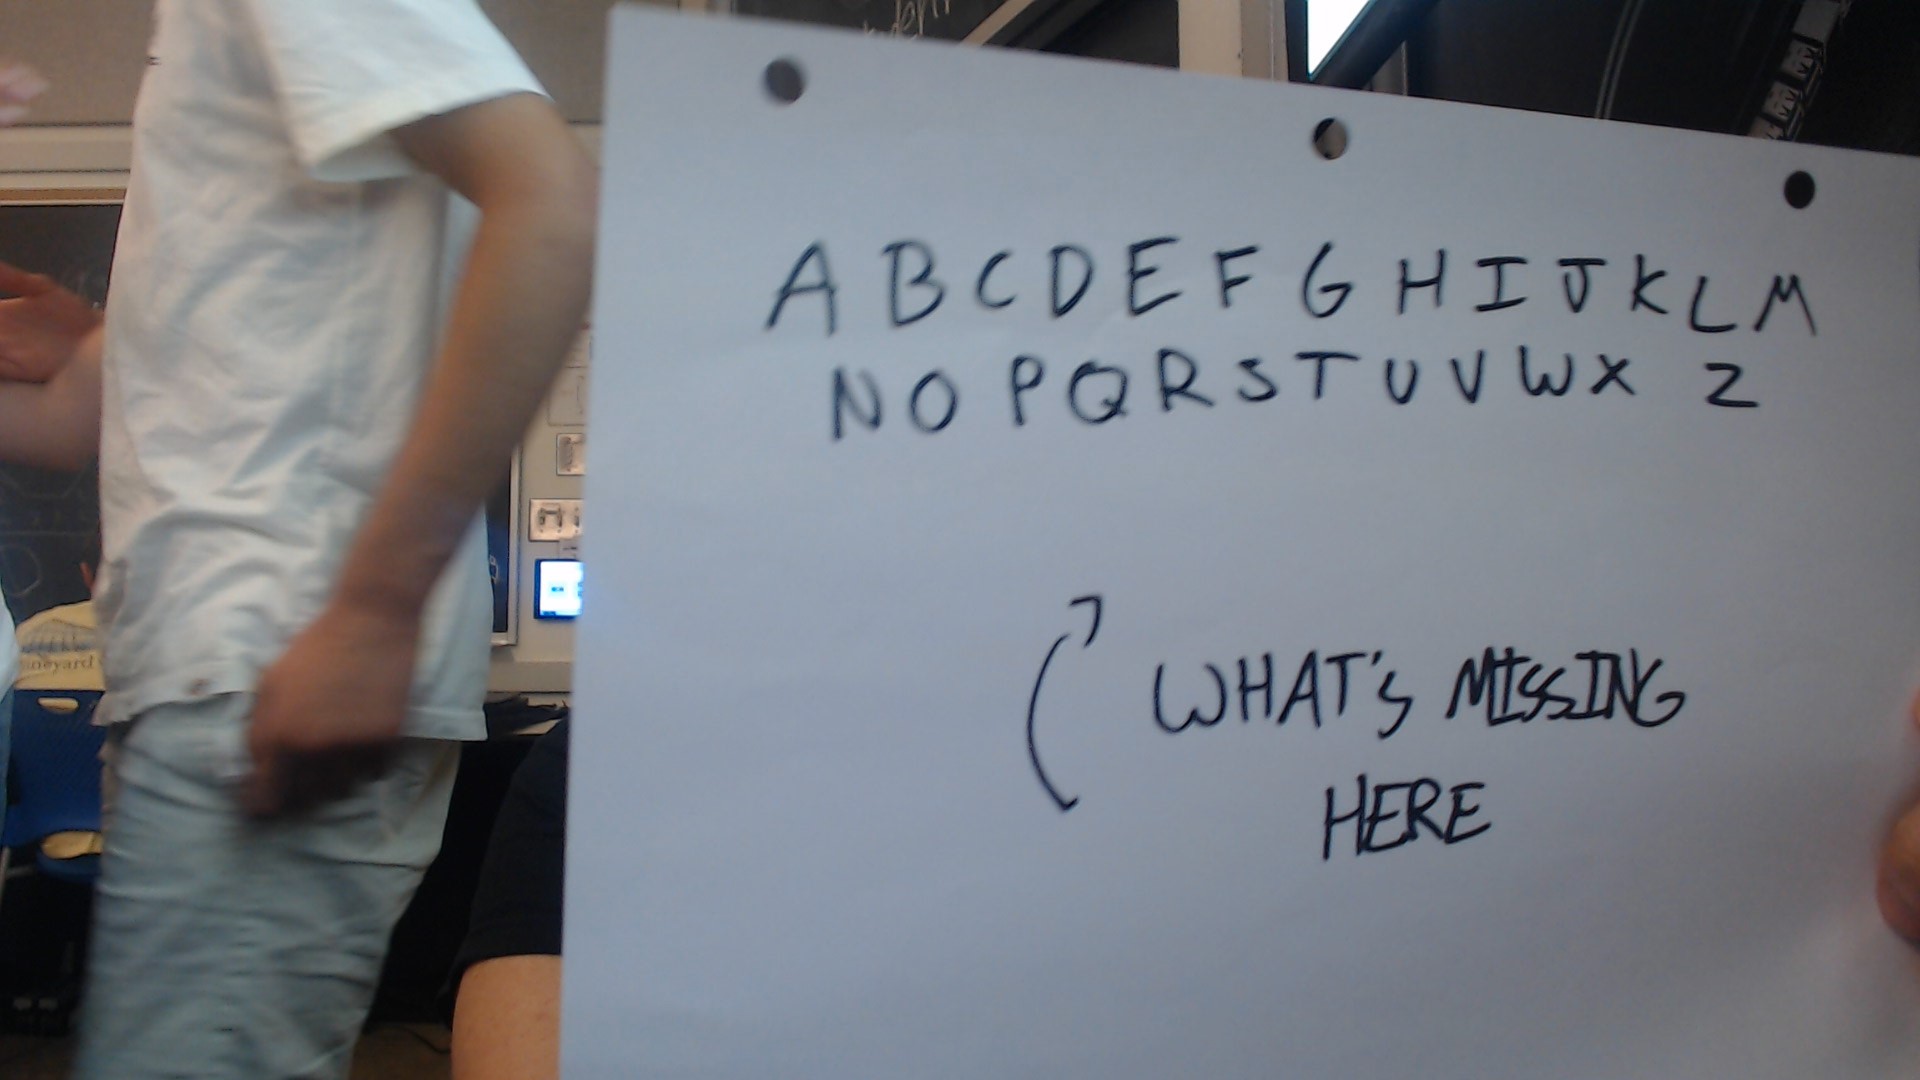 A B C D E F G H I J K L M
N O P Q R S T U V W X Z
WHAT'S MISSING
HERE
neyard